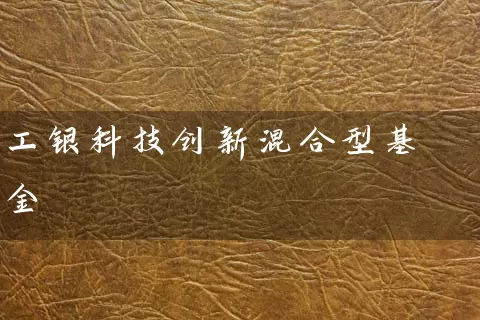 工银科技创新混合型基
金